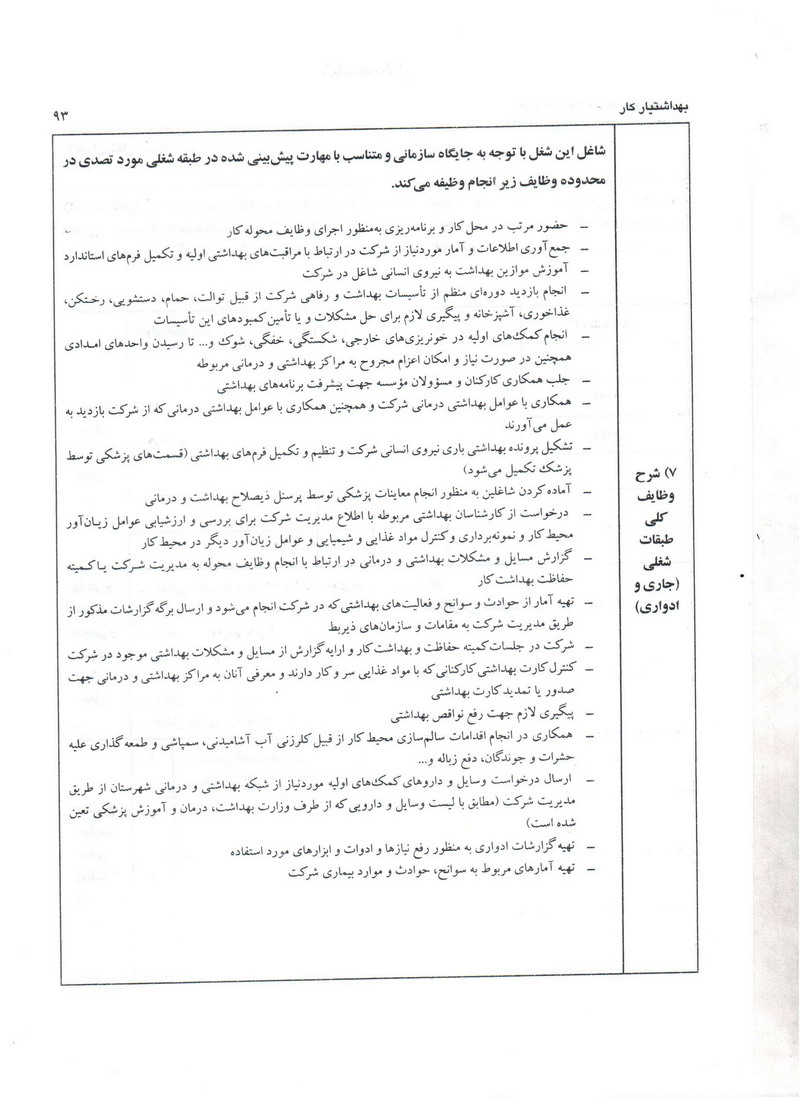 بهداشتیار کار
۹۳
۷) شرح
وظایف
کلی
طبقات
شغلی
(جاری و
ادواری)
شاغل این شغل با توجه به جایگاه سازمانی و متناسب با مهارت پیش‌بینی شده در طبقه شغلی مورد تصدی در
محدوده وظایف زیر انجام وظیفه می‌کند.
– حضور مرتب در محل کار و برنامه‌ریزی به‌منظور اجرای وظایف محوله کار
– جمع‌آوری اطلاعات و آمار موردنیاز از شرکت در ارتباط با مراقبت‌های بهداشتی اولیه و تکمیل فرم‌های استاندارد
– آموزش موازین بهداشت به نیروی انسانی شاغل در شرکت
– انجام بازدید دوره‌ای منظم از تأسیسات بهداشت و رفاهی شرکت از قبیل توالت، حمام، دستشویی، رختکن،
غذاخوری، آشپزخانه و پیگیری لازم برای حل مشکلات و یا تأمین کمبودهای این تأسیسات
– انجام کمک‌های اولیه در خونریزی‌های خارجی، شکستگی، خفگی، شوک و... تا رسیدن واحدهای امدادی
همچنین در صورت نیاز و امکان اعزام مجروح به مراکز بهداشتی و درمانی مربوطه
– جلب همکاری کارکنان و مسؤولان مؤسسه جهت پیشرفت برنامه‌های بهداشتی
– همکاری با عوامل بهداشتی درمانی شرکت و همچنین همکاری با عوامل بهداشتی درمانی که از شرکت بازدید به
عمل می‌آورند
– تشکیل پرونده بهداشتی باری نیروی انسانی شرکت و تنظیم و تکمیل فرم‌های بهداشتی (قسمت‌های پزشکی توسط
پزشک تکمیل می‌شود)
– آماده کردن شاغلین به منظور انجام معاینات پزشکی توسط پرسنل ذیصلاح بهداشت و درمانی
– درخواست از کارشناسان بهداشتی مربوطه با اطلاع مدیریت شرکت برای بررسی و ارزشیابی عوامل زیان‌آور
محیط کار و نمونه‌برداری و کنترل مواد غذایی و شیمیایی و عوامل زیان‌آور دیگر در محیط کار
– گزارش مسایل و مشکلات بهداشتی و درمانی در ارتباط با انجام وظایف محوله به مدیریت شرکت یا کمیته
حفاظت بهداشت کار
– تهیه آمار از حوادث و سوانح و فعالیت‌های بهداشتی که در شرکت انجام می‌شود و ارسال برگه گزارشات مذکور از
طریق مدیریت شرکت به مقامات و سازمان‌های ذیربط
– شرکت در جلسات کمیته حفاظت و بهداشت کار و ارایه گزارش از مسایل و مشکلات بهداشتی موجود در شرکت
– کنترل کارت بهداشتی کارکنانی که با مواد غذایی سر و کار دارند و معرفی آنان به مراکز بهداشتی و درمانی جهت
صدور یا تمدید کارت بهداشتی
– پیگیری لازم جهت رفع نواقص بهداشتی
– همکاری در انجام اقدامات سالم‌سازی محیط کار از قبیل کلرزنی آب آشامیدنی، سمپاشی و طمعه گذاری علیه
حشرات و جوندگان، دفع زباله و...
– ارسال درخواست وسایل و داروهای کمک‌های اولیه موردنیاز از شبکه بهداشتی و درمانی شهرستان از طریق
مدیریت شرکت (مطابق با لیست وسایل و دارویی که از طرف وزارت بهداشت، درمان و آموزش پزشکی تعین
شده است)
– تهیه گزارشات ادواری به منظور رفع نیازها و ادوات و ابزارهای مورد استفاده
– تهیه آمارهای مربوط به سوانح، حوادث و موارد بیماری شرکت